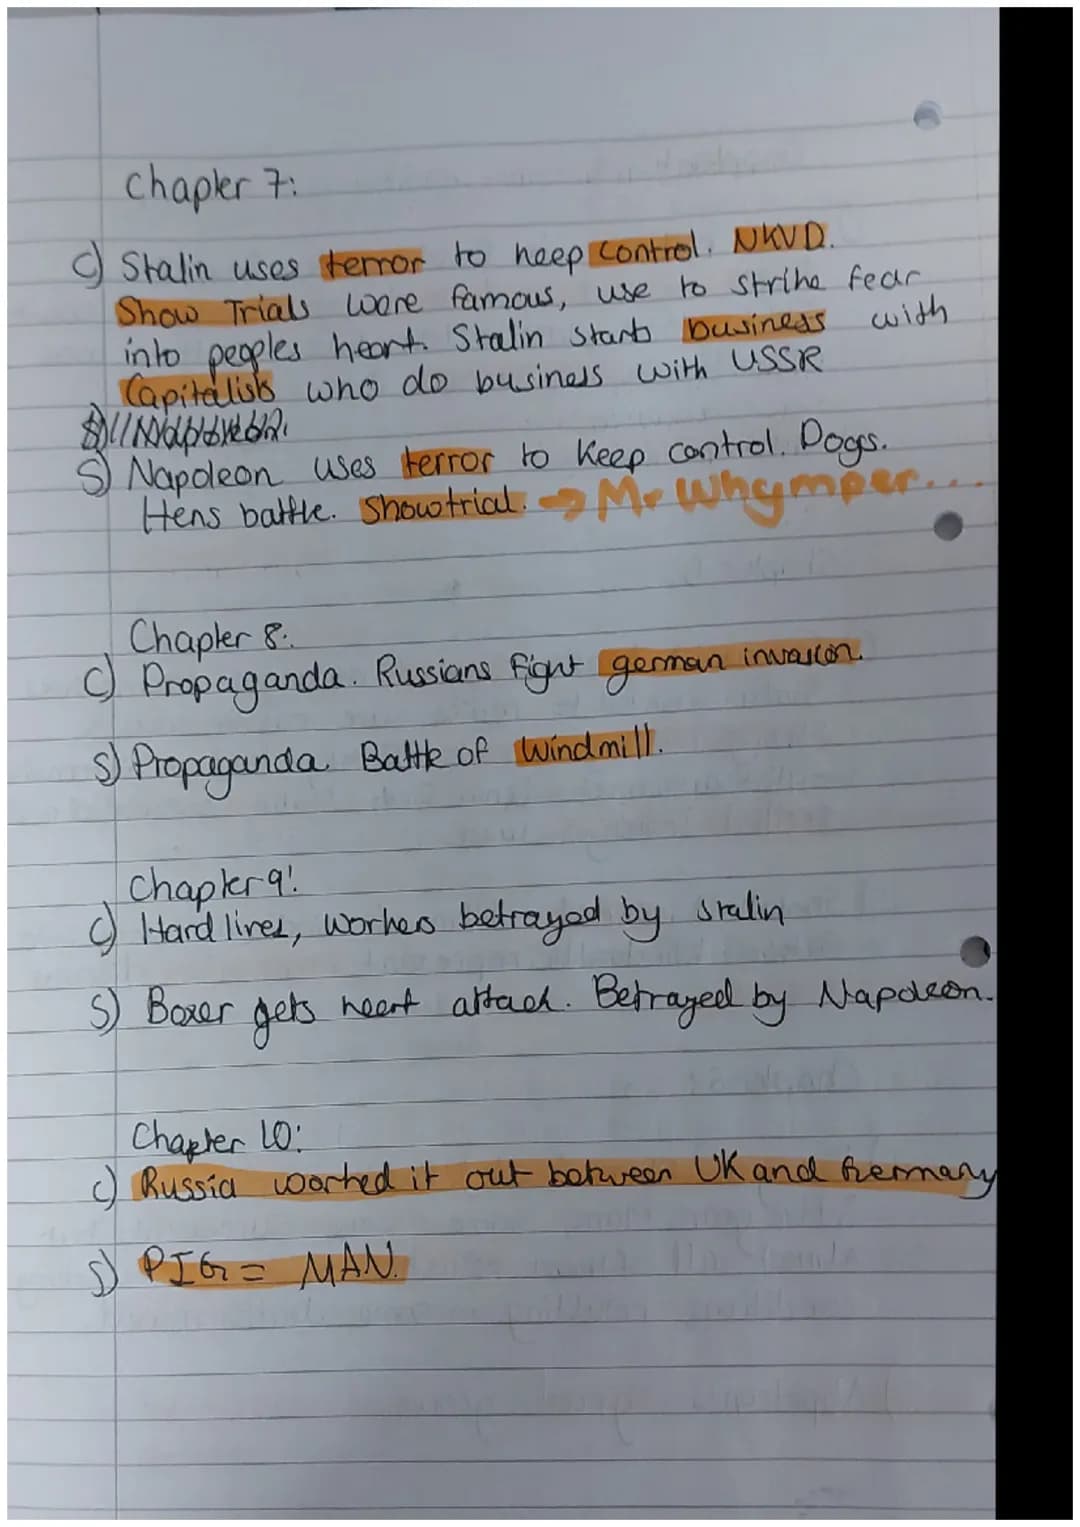 Chapter 7:
C) Stalin uses terror to keep control. NKVD.
Show Trials were famous, use to strike fear
into peoples heart. Stalin starts business with
Capitalists who do business with USSR
S) Napoleon uses terror to keep control. Dogs.
Hens battle. Showtrial. → Mr Whymper...
Chapter 8:
C) Propaganda. Russians fight german invasion.
S) Propaganda. Battle of Windmill.
Chapter 9:
C) Hard lives, workers betrayed by stalin
S) Boxer gets heart attack. Betrayed by Napoleon.
Chapter 10:
C) Russia worked it out between UK and Germany
S) PIG = MAN.